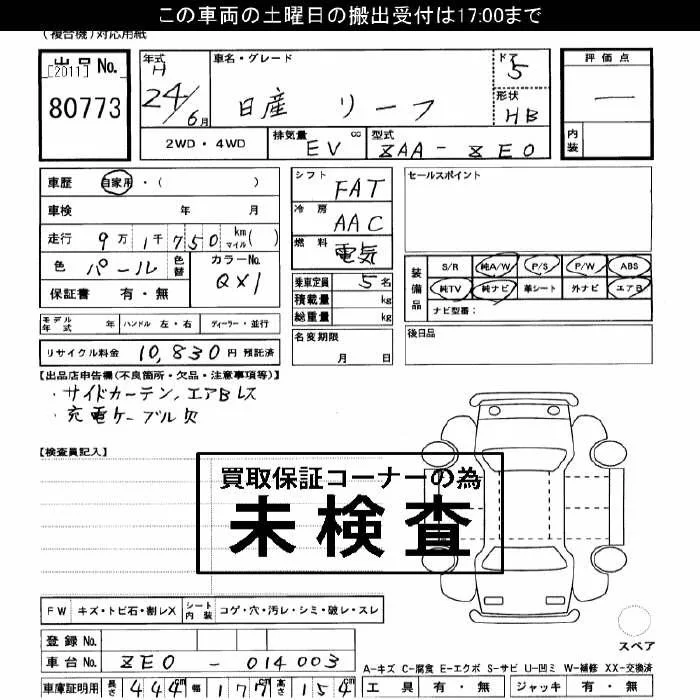 この車両の土曜日の搬出受付は17:00まで
(複合機)対応用紙
出品 No.
[2011]
80773
年式
H
24/6月
車名・グレード
日産 リーフ
ドア
5
形状
HB
評価点
—
内装
2WD・4WD
排気量
EV cc
型式
ZAA-ZE0
車歴 自家用・( )
車検 年 月
走行 9万1千750 km マイル( )
色 パール 色替
カラーNo.
QX1
保証書 有・無
シフト FAT
冷房 AAC
燃料 電気
乗車定員 5名
積載量 kg
総重量 kg
名変期限
月 日
セールスポイント
装備品
S/R 純A/W P/S P/W ABS
純TV 純ナビ 革シート 外ナビ エアB
ナビ型番:
後日品
モデル年式 年 ハンドル 左・右 ディーラー・並行
リサイクル料金 10,830円 預託済
【出品店申告欄(不良箇所・欠品・注意事項等)】
・サイドカーテン,エアBレス
・充電ケーブル欠
【検査員記入】
買取保証コーナーの為
未検査
FW キズ・トビ石・割レX シート内装 コゲ・穴・汚レ・シミ・破レ・スレ
登録 No.
車台 No. ZE0-014003
車庫証明用 長さ 444cm 幅 177cm 高さ 154cm
スペア
A-キズ C-腐食 E-エクボ S-サビ U-凹ミ W-補修 XX-交換済
工具 有・無 ジャッキ 有・無